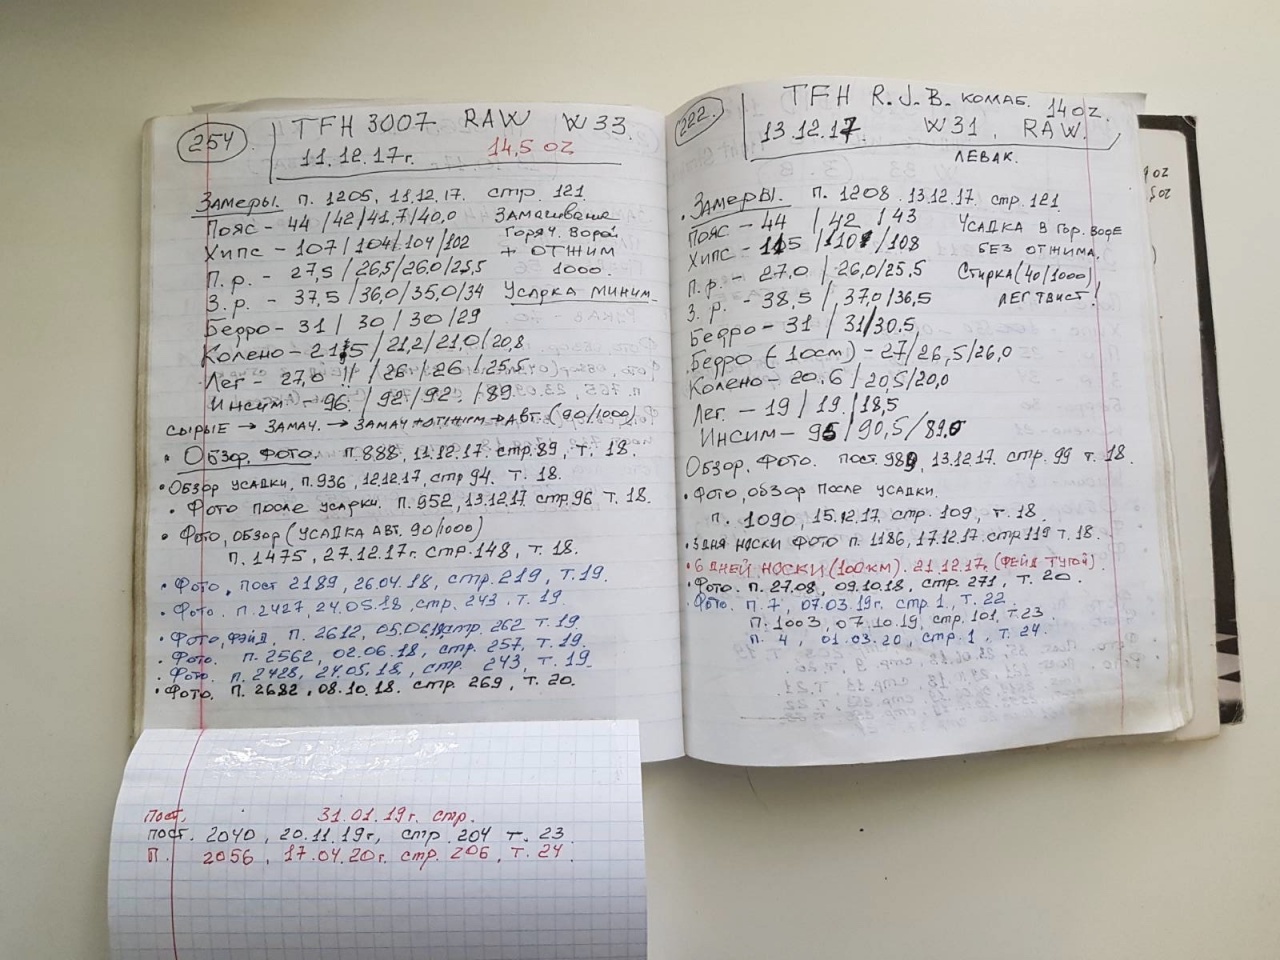 254. TFH 3007 RAW W33.
11.12.17г. 14,5 oz
Замеры. п. 1205, 11.12.17. стр. 121
Пояс - 44 / 42 / 41,7 / 40,0 Замачивание
Хипс - 107 / 104 / 104 / 102 горяч. водой
П.р. - 27,5 / 26,5 / 26,0 / 25,5 + отжим
З.р. - 37,5 / 36,0 / 35,0 / 34 1000.
Бедро - 31 / 30 / 30 / 29 Усадка миним.
Колено - 21,5 / 21,2 / 21,0 / 20,8
Лег - 27,0 / 26 / 26 / 25,5
Инсим - 96 / 92 / 92 / 89
сырые → замач. → замач + отжим → авт. (90/1000)
• Обзор, фото. п. 888, 11.12.17. стр. 89, т. 18.
• Обзор усадки, п. 936, 12.12.17, стр 94. т. 18.
• Фото после усадки. п. 952, 13.12.17 стр. 96 т. 18.
• Фото, обзор (усадка авт. 90/1000)
п. 1475, 27.12.17г. стр. 148, т. 18.
• Фото, пост 2189, 26.04.18, стр. 219, т. 19.
• Фото. п. 2427, 24.05.18, стр. 243, т. 19
• Фото, фэйд, п. 2612, стр. 262 т. 19
• Фото. п. 2562, 02.06.18, стр. 257, т. 19.
• Фото. п. 2428, 24.05.18, стр. 243, т. 19
• Фото. п. 2682, 08.10.18. стр. 269, т. 20.
Пост, 31.01.19г. стр.
пост. 2040, 20.11.19г, стр 204 т. 23
П. 2056, 17.04.20г. стр. 206, т. 24
222. TFH R.J.B. комаб. 14 oz.
13.12.17 W31, RAW.
левак.
• Замеры. п. 1208. 13.12.17. стр. 121
Пояс - 44 / 42 / 43 Усадка в гор. воде
Хипс - 115 / 110 / 108 без отжима.
П.р. - 27,0 / 26,0 / 25,5 Стирка (40/1000)
З.р. - 38,5 / 37,0 / 36,5 лег твист!
Бедро - 31 / 31 / 30,5
Бедро (-10см) - 27 / 26,5 / 26,0
Колено - 20.6 / 20,5 / 20,0
Лег - 19 / 19 / 18,5
Инсим - 95 / 90,5 / 89,0
Обзор, фото. пост. 989, 13.12.17. стр. 99 т. 18.
• Фото, обзор после усадки.
п. 1090, 15.12.17. стр. 109, т. 18.
• 3 дня носки фото п. 1186, 17.12.17. стр 119 т. 18.
• 6 дней носки (100км). 21.12.17г. (фейд тугой).
• Фото. п. 27.08, 09.10.18, стр. 271, т. 20.
• Фото. п. 7, 07.03.19г. стр 1., т. 22
п. 1003, 07.10.19, стр. 101, т. 23
п. 4, 01.03.20, стр. 1, т. 24.